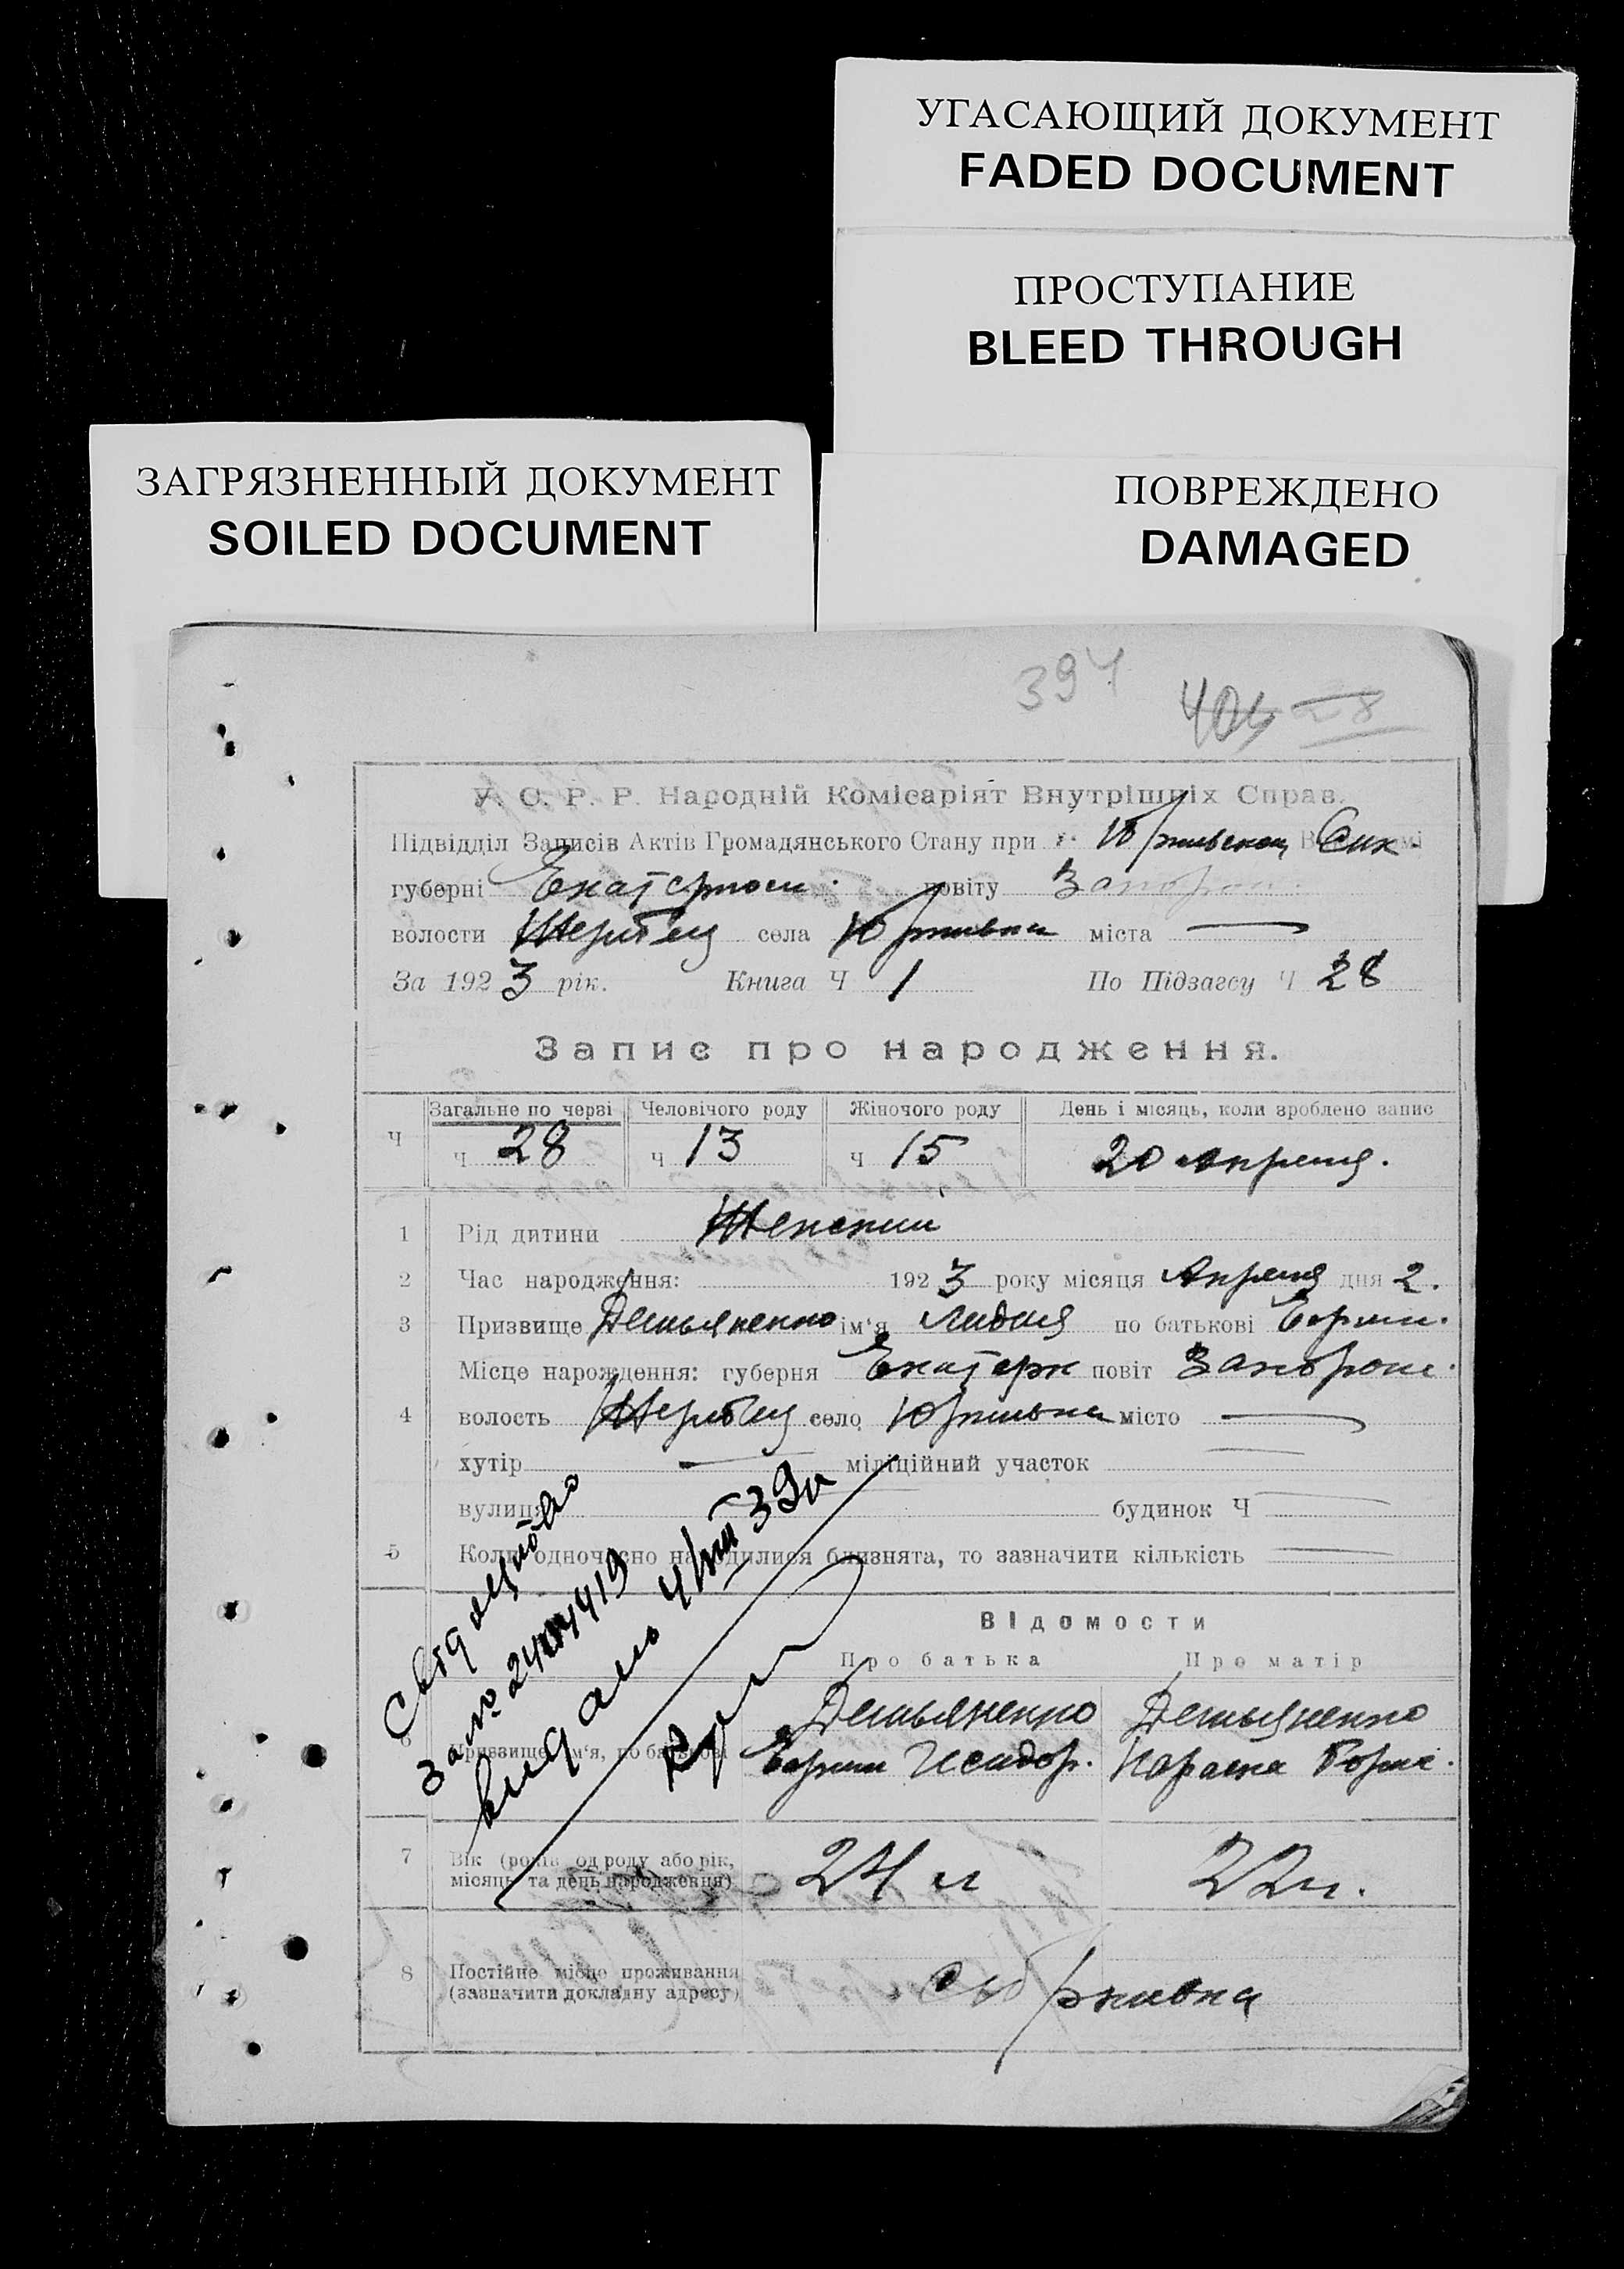 УГАСАЮЩИЙ ДОКУМЕНТ
FADED DOCUMENT
ПРОСТУПАНИЕ
BLEED THROUGH
ЗАГРЯЗНЕННЫЙ ДОКУМЕНТ
SOILED DOCUMENT
ПОВРЕЖДЕНО
DAMAGED
394
28
У. С. Р. Р. Народній Комісаріят Внутрішніх Справ.
Підвідділ Записів Актів Громадянського Стану при
губерні повіту Запорож.
волости Жеребец села Юрковка міста —
За 1923 рік. Книга Ч 1 По Підзагсу Ч 28
Запис про народження.
Загальне по черзі Человічого роду Жіночого роду День і місяць, коли зроблено запис
Ч Ч 28 Ч 13 Ч 15 20 апреля.
1 Рід дитини Женский
2 Час народження: 1923 року місяця Апреля дня 2.
3 Призвище Демьяненко ім'я Лидия по батькові
Місце нарождення: губерня Екатерин повіт Запорож.
4 волость Жеребец село Юрковка місто —
хутір — міліційний участок —
вулиця — будинок Ч —
5 Коли одночасно народилися близнята, то зазначити кількість —
Відомости
Про батька Про матір
Демьяненко Демьяненко
6 Призвище, ім'я, по батькові Исидор.
7 Вік (років од роду або рік, 24 22
місяць та день народження)
8 Постійне місце проживання с Юрковка
(зазначити докладну адресу)